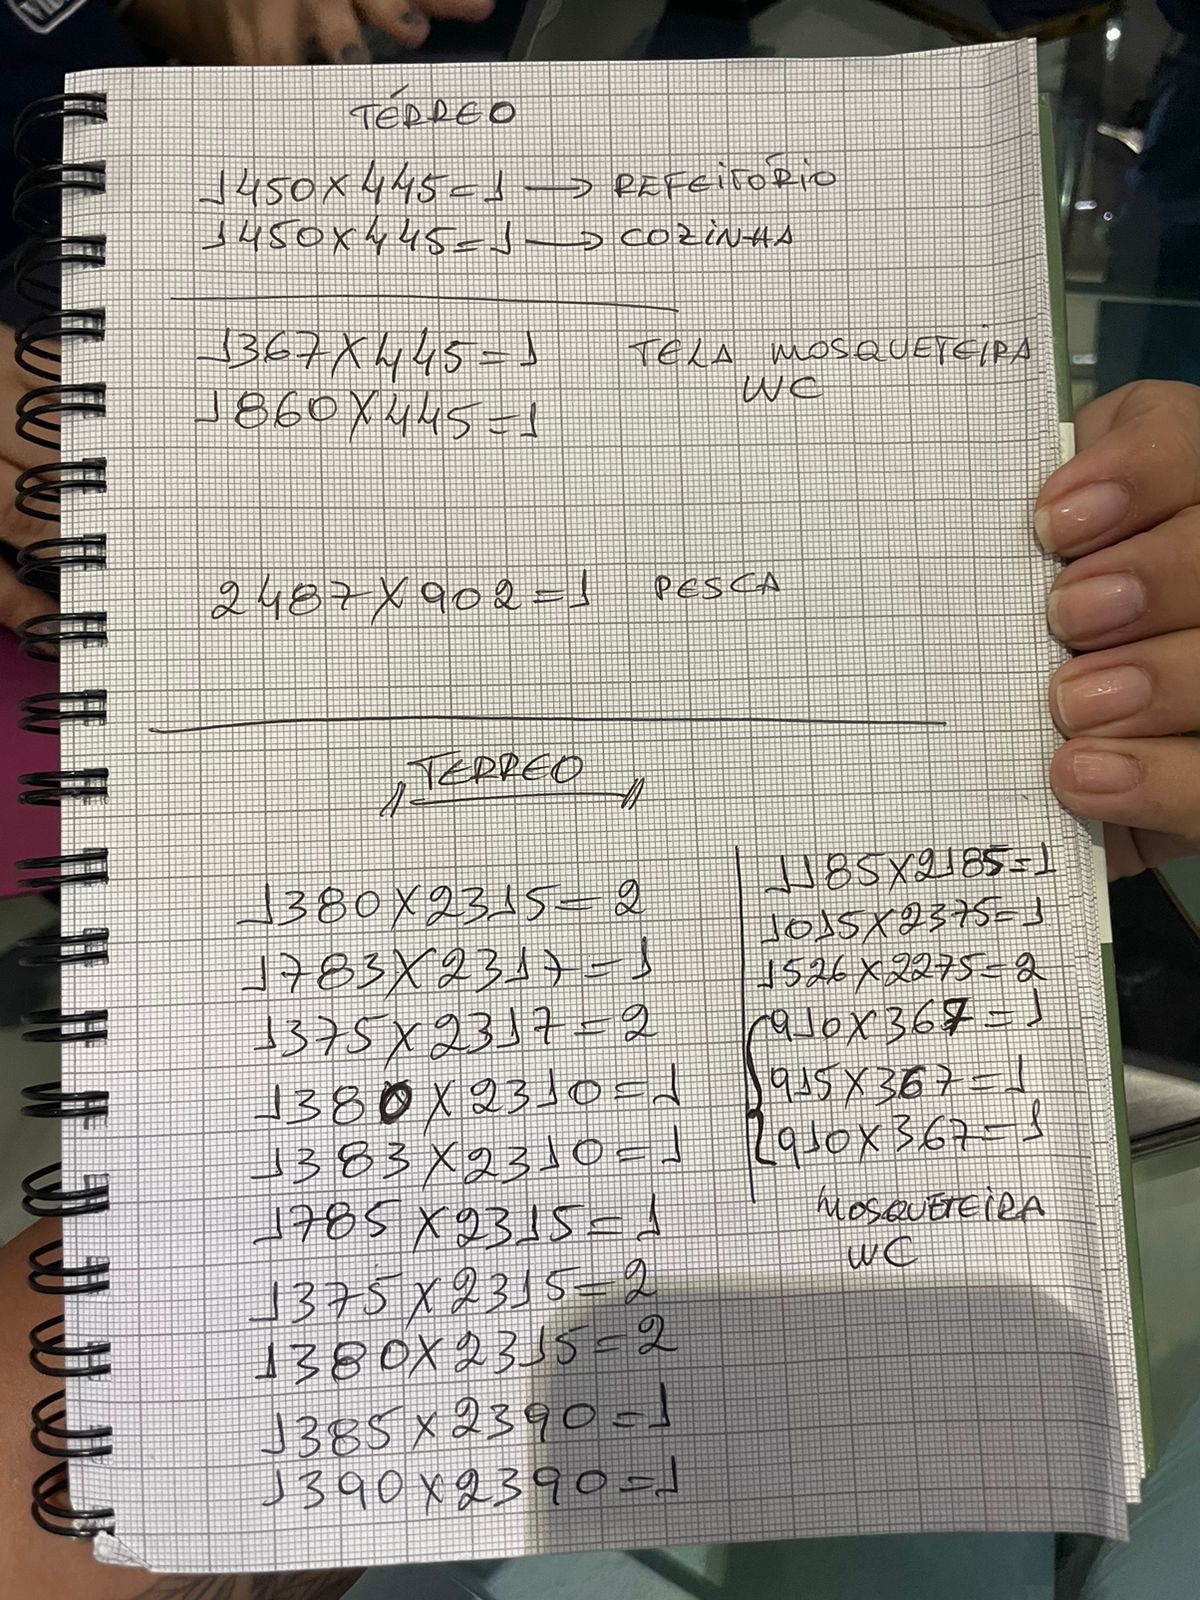 TÉRREO
1450X445=1 → REFEITÓRIO
1450X445=1 → COZINHA
1367X445=1 TELA MOSQUETEIRA
WC
1860X445=1
2487X902=1 PESCA
TERREO
1380X2315=2
1783X2317=1
1375X2317=2
1380X2310=1
1383X2310=1
1785X2315=1
1375X2315=2
1380X2315=2
1385X2390=1
1390X2390=1
1185X2185=1
1015X2375=1
1526X2275=2
910X367=1
915X367=1
910X367=1
MOSQUETEIRA
WC